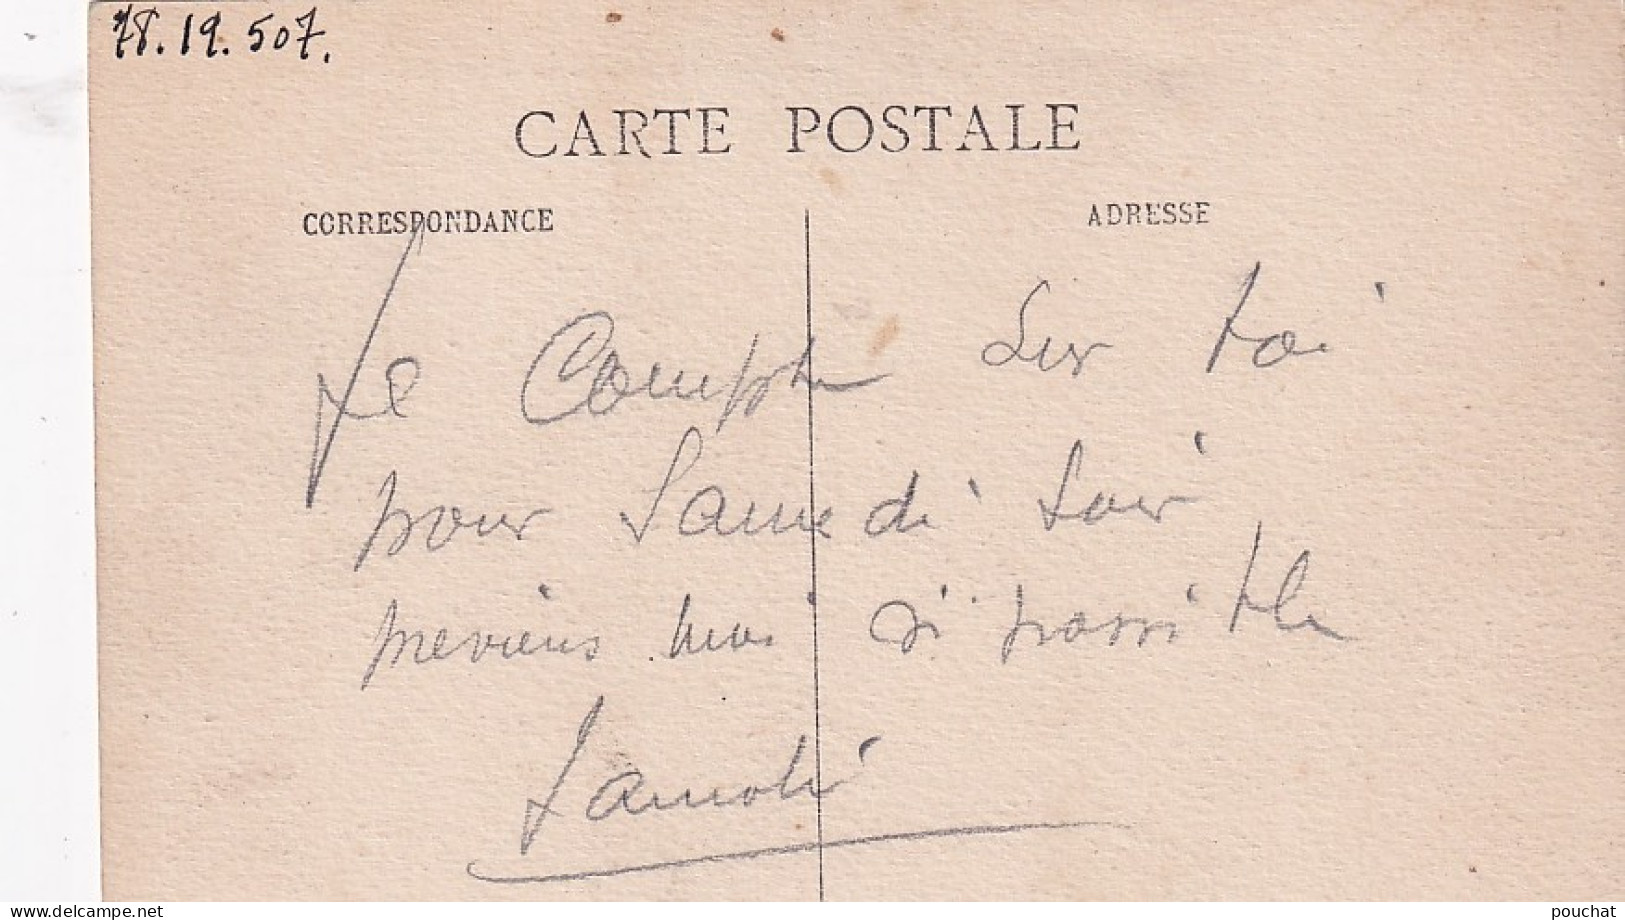 78.19.507.
CARTE POSTALE
CORRESPONDANCE
ADRESSE
Je Compte sur toi
pour Samedi soir
previens moi si possible
delcampe.net
pouchat